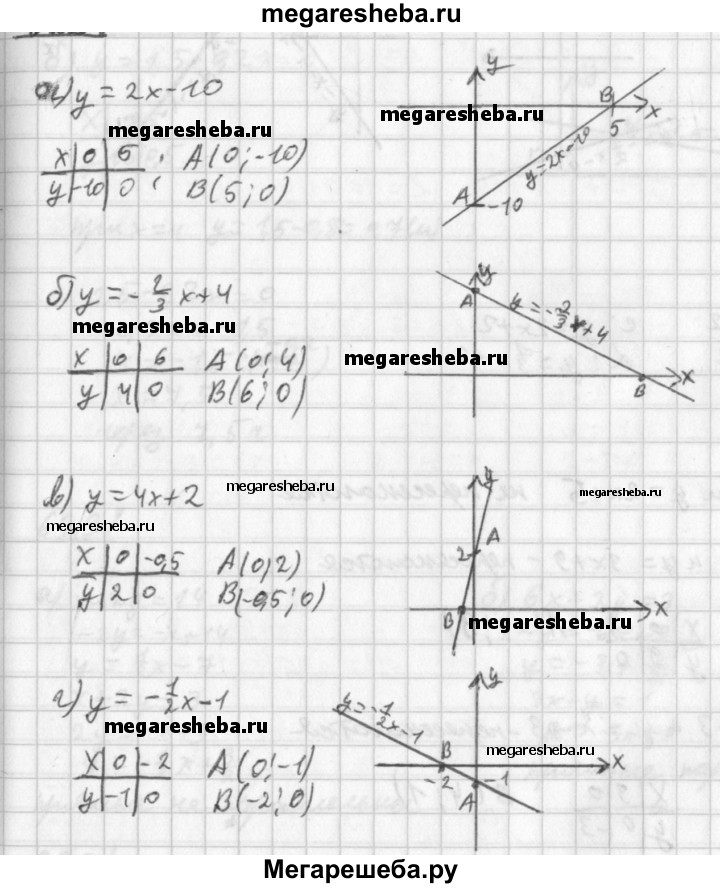 megaresheba.ru
а) y = 2x - 10
megaresheba.ru
x | 0 | 5 ; A(0; -10)
y | -10 | 0 ; B(5; 0)
y
B
x
5
megaresheba.ru
y = 2x - 10
A
-10
б) y = -2/3 x + 4
megaresheba.ru
x | 0 | 6 A(0; 4)
y | 4 | 0 B(6; 0)
y
A
y = -2/3 x + 4
megaresheba.ru
x
B
в) y = 4x + 2
megaresheba.ru
megaresheba.ru
x | 0 | -0,5 A(0; 2)
y | 2 | 0 B(-0,5; 0)
y
megaresheba.ru
A
2
B
x
megaresheba.ru
г) y = -1/2 x - 1
megaresheba.ru
x | 0 | -2 A(0; -1)
y | -1 | 0 B(-2; 0)
y
y = -1/2 x - 1
megaresheba.ru
B
x
-2
-1
A
Мегарешеба.ру